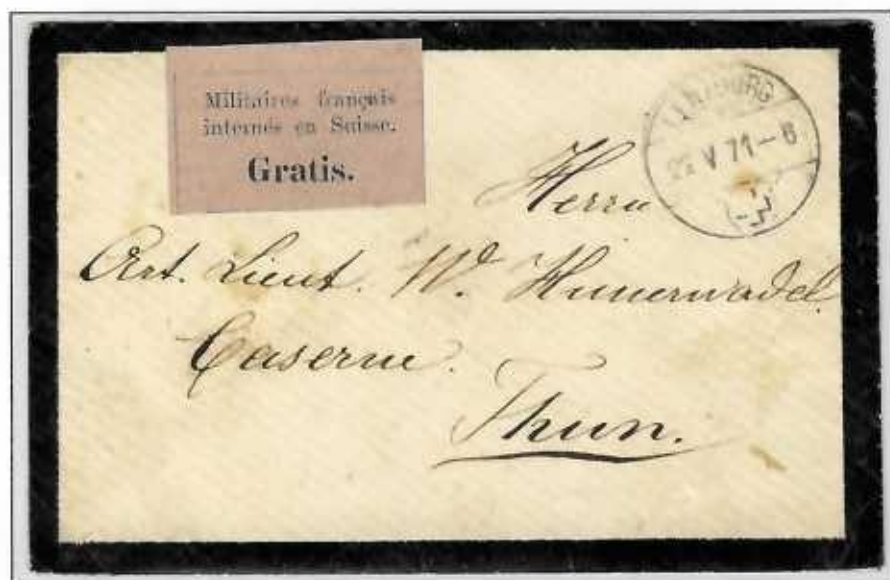 Militaires français
internés en Suisse.
Gratis.
LENZBURG
22 V 71 – 6
Herrn
Art. Lieut. W. Hünerwadel.
Caserne.
Thun.